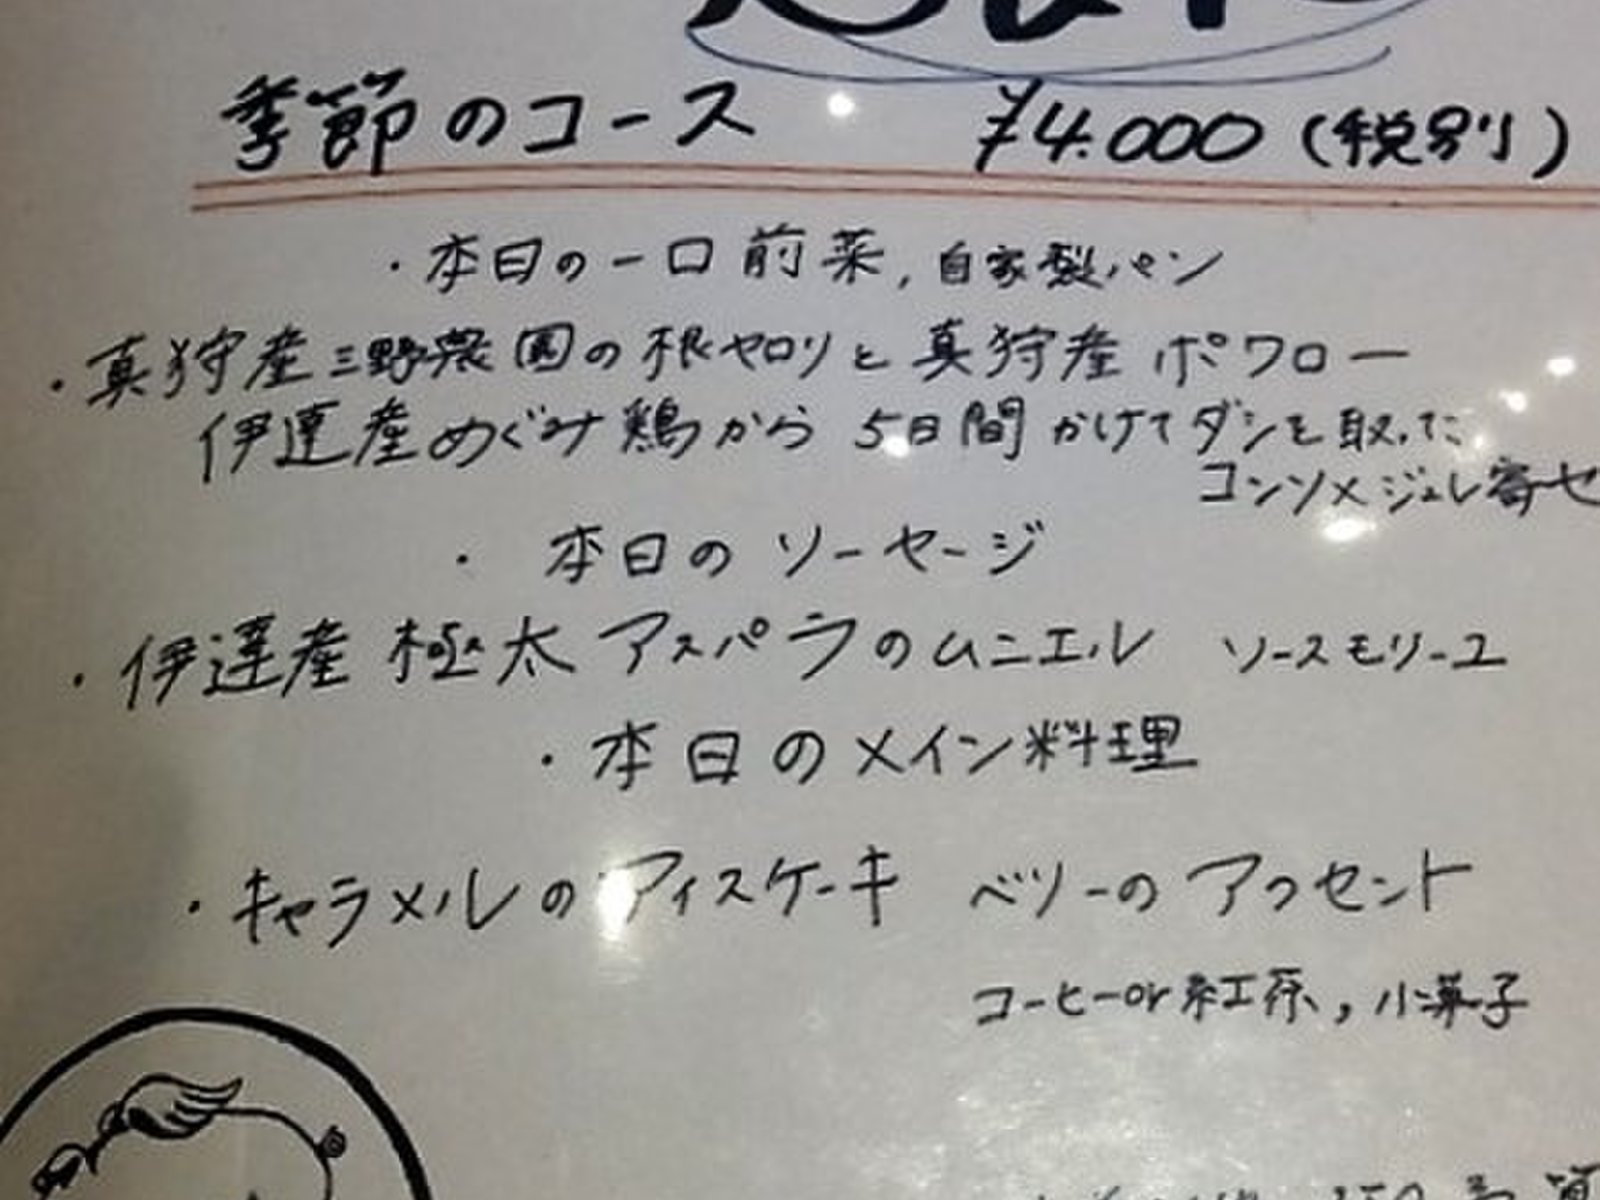 季節のコース ¥4.000(税別)
・本日の一口前菜,自家製パン
・真狩産三野農園の根セロリと真狩産ポワロー
伊達産めぐみ鶏から5日間かけてダシを取った
コンソメジュレ寄せ
・本日のソーセージ
・伊達産極太アスパラのムニエル ソースモリーユ
・本日のメイン料理
・キャラメルのアイスケーキ ベリーのアクセント
コーヒーor紅茶,小菓子